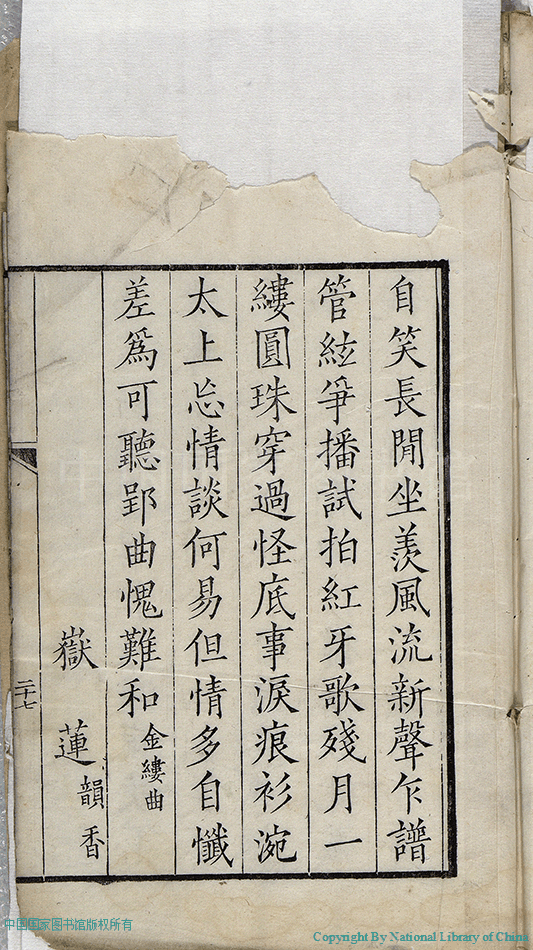 自笑長閒坐羨風流新聲乍譜
管絃爭播試拍紅牙歌殘月一
縷圓珠穿過怪底事淚痕衫涴
太上忘情談何易但情多自懺
差爲可聽郢曲愧難和金縷曲
嶽蓮韻香
二十七
中国国家图书馆版权所有
Copyright By National Library of China